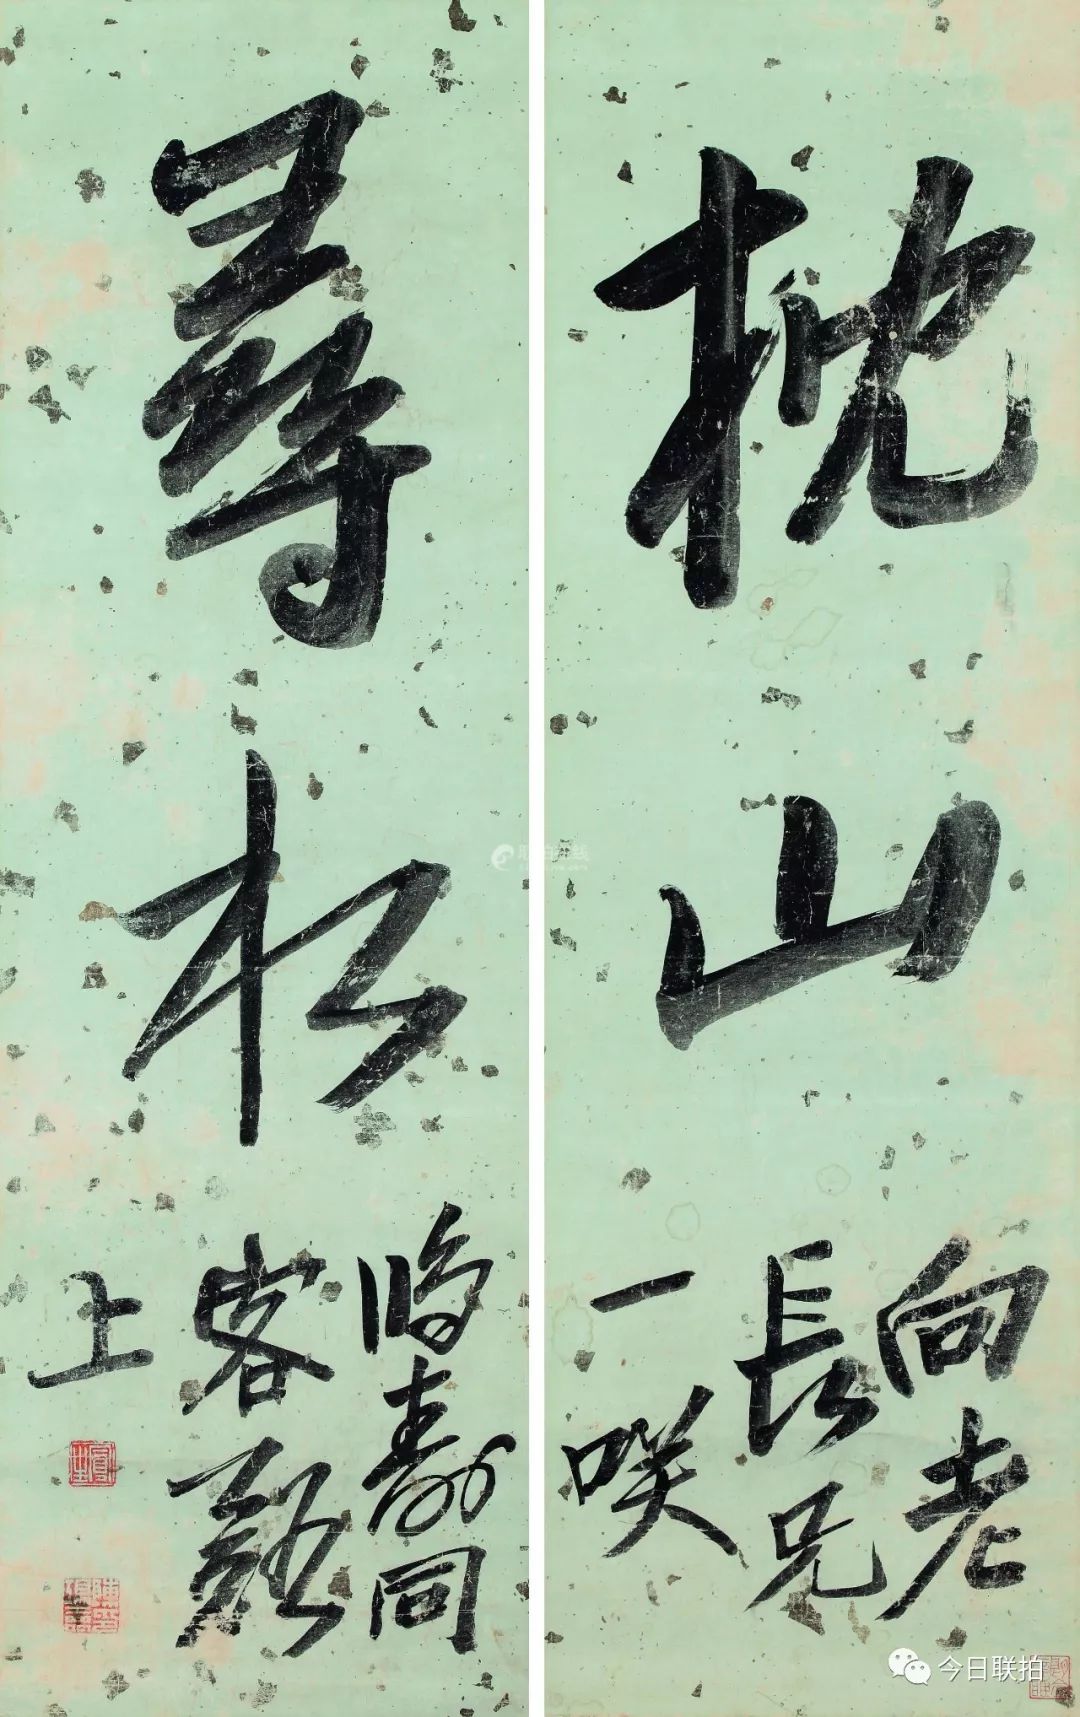 枕山
向老
長兄
一咲
尋松
壽同
客
上
今日联拍